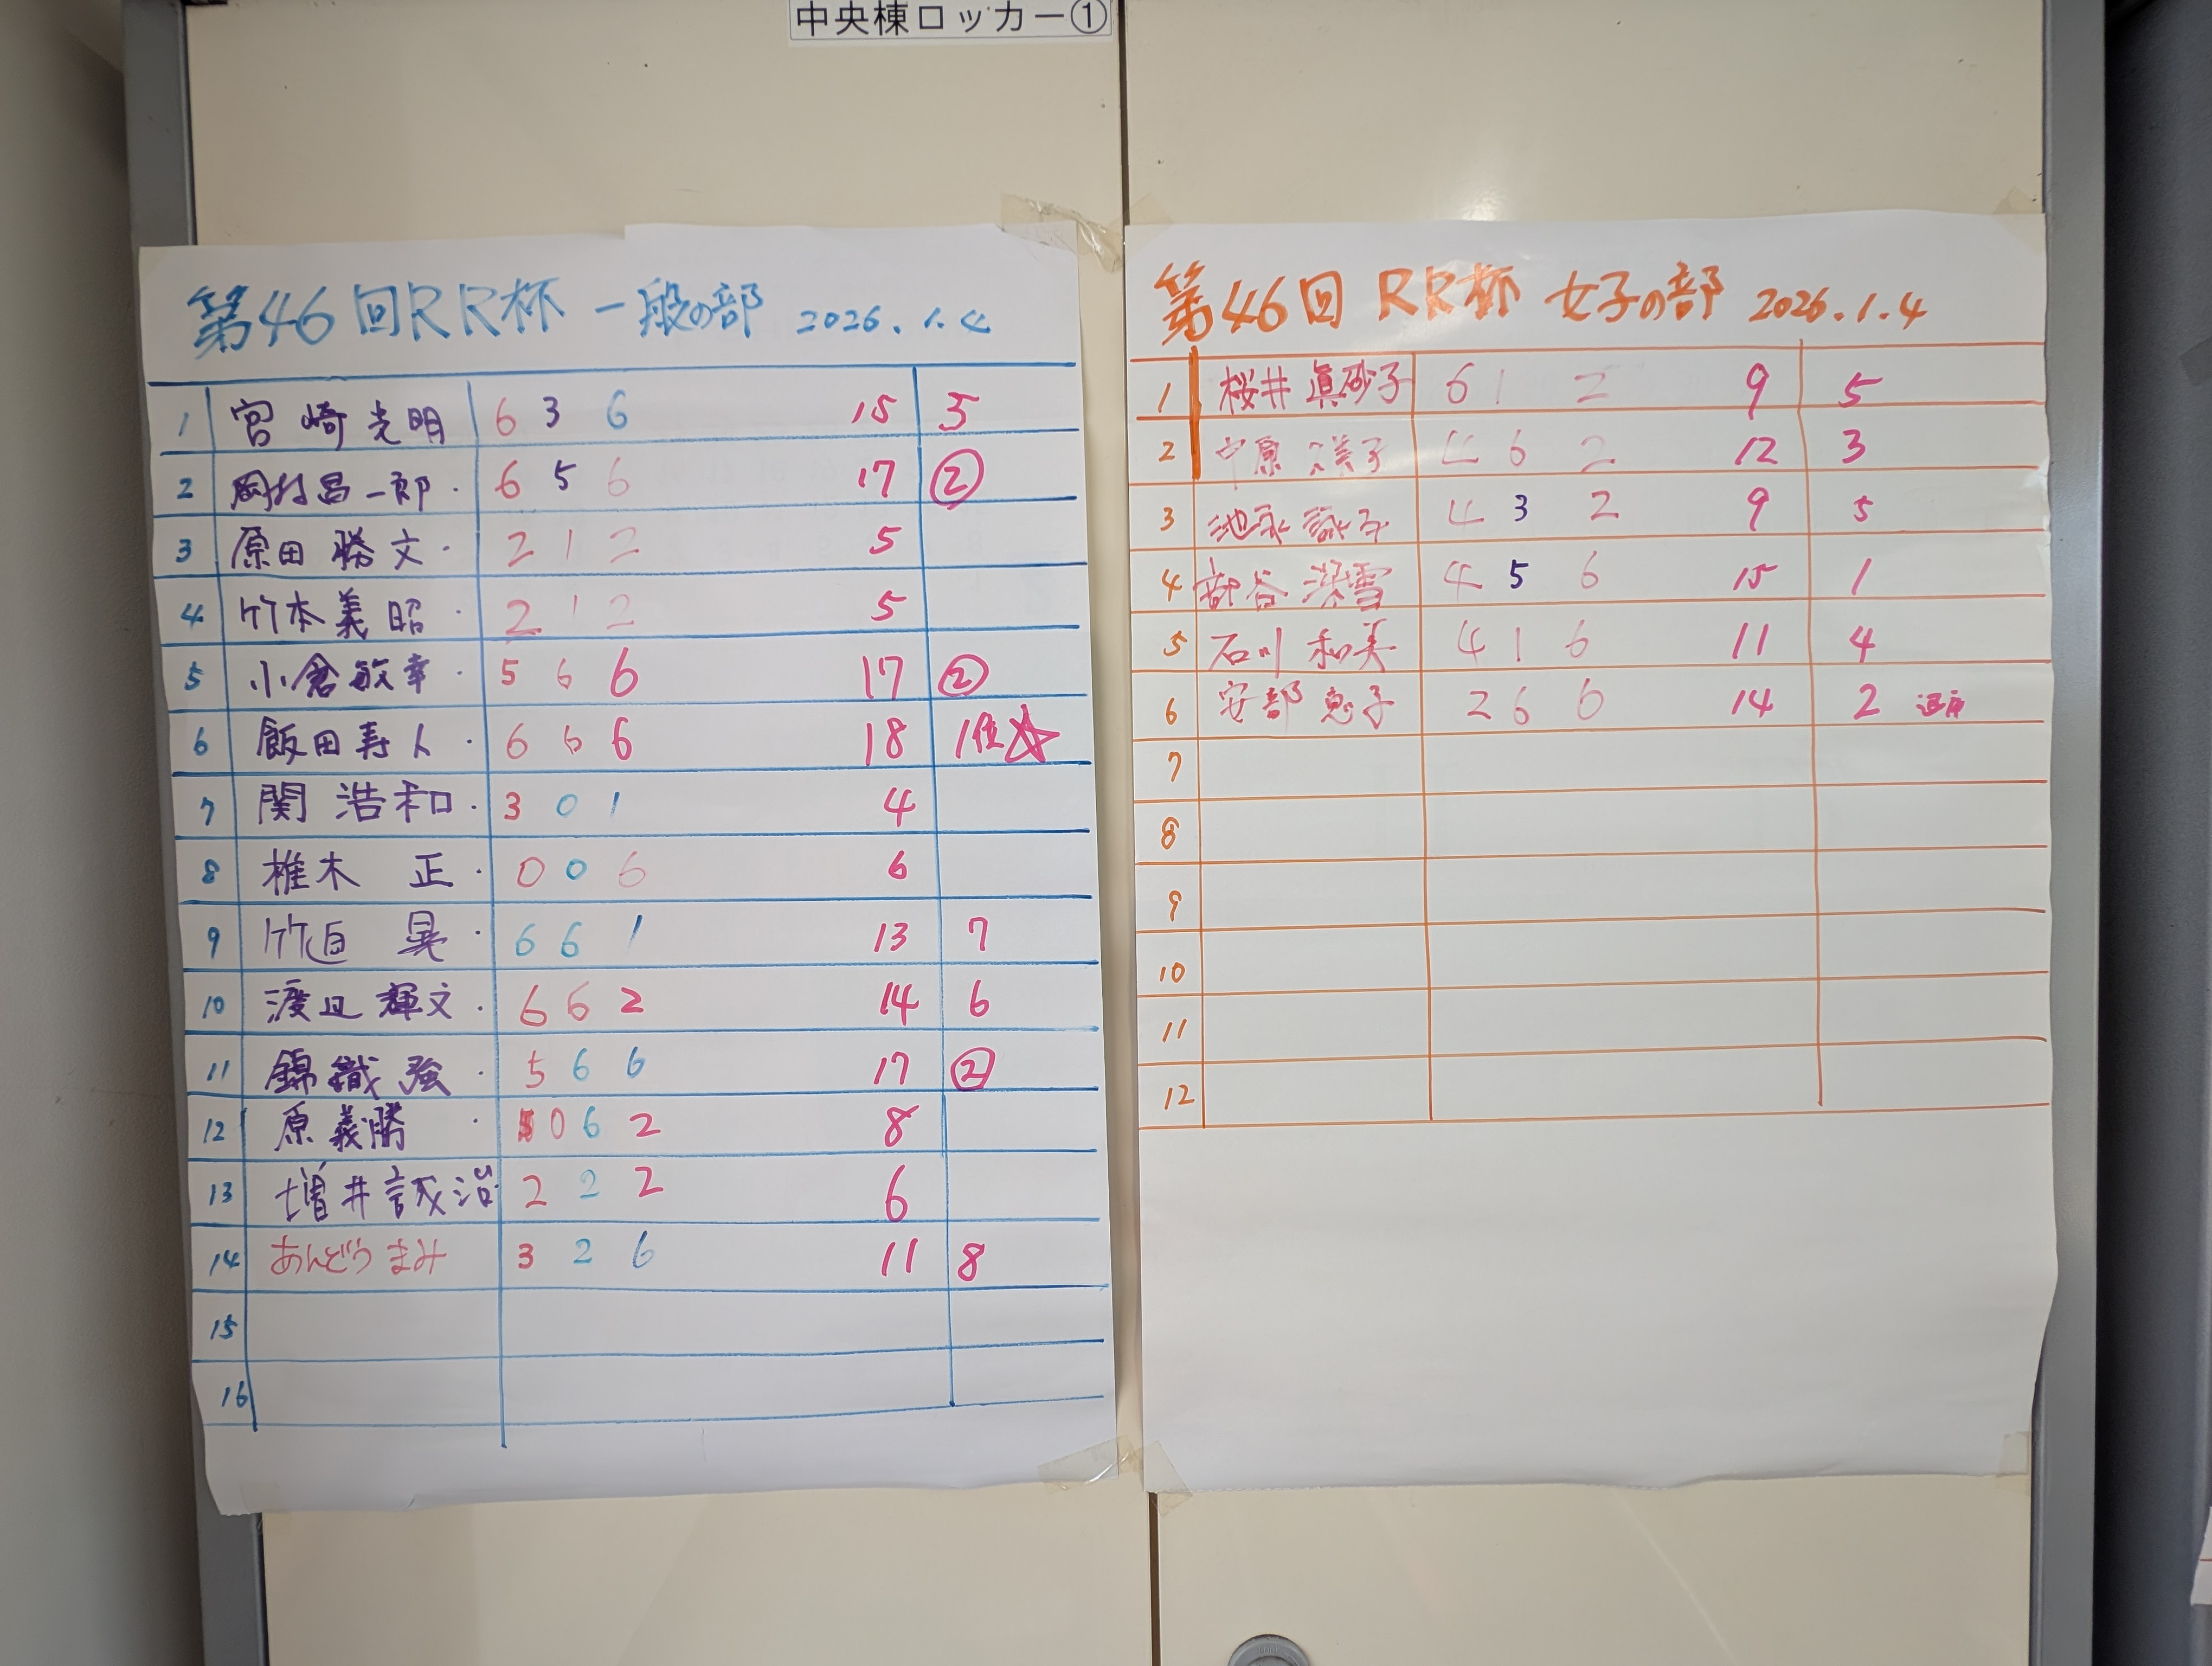 中央棟ロッカー①
第46回RR杯 一般の部 2026.1.4
1 宮崎光明 6 3 6 15 5
2 岡村昌一郎 . 6 5 6 17 ②
3 原田勝文 . 2 1 2 5
4 竹本義昭 . 2 1 2 5
5 小倉敏幸 . 5 6 6 17 ②
6 飯田寿人 . 6 6 6 18 1位☆
7 関浩和 . 3 0 1 4
8 椎木 正 . 0 0 6 6
9 晃 . 6 6 1 13 7
10 渡辺輝文 . 6 6 2 14 6
11 錦織強 . 5 6 6 17 ②
12 原義勝 . 0 6 2 8
13 増井誠治 2 2 2 6
14 あんどうまみ 3 2 6 11 8
15
16
第46回 RR杯 女子の部 2026.1.4
1 桜井眞砂子 6 1 2 9 5
2 中原 4 6 2 12 3
3 池永詠子 4 3 2 9 5
4 谷深雪 4 5 6 15 1
5 石川和美 4 1 6 11 4
6 安部恵子 2 6 6 14 2
7
8
9
10
11
12